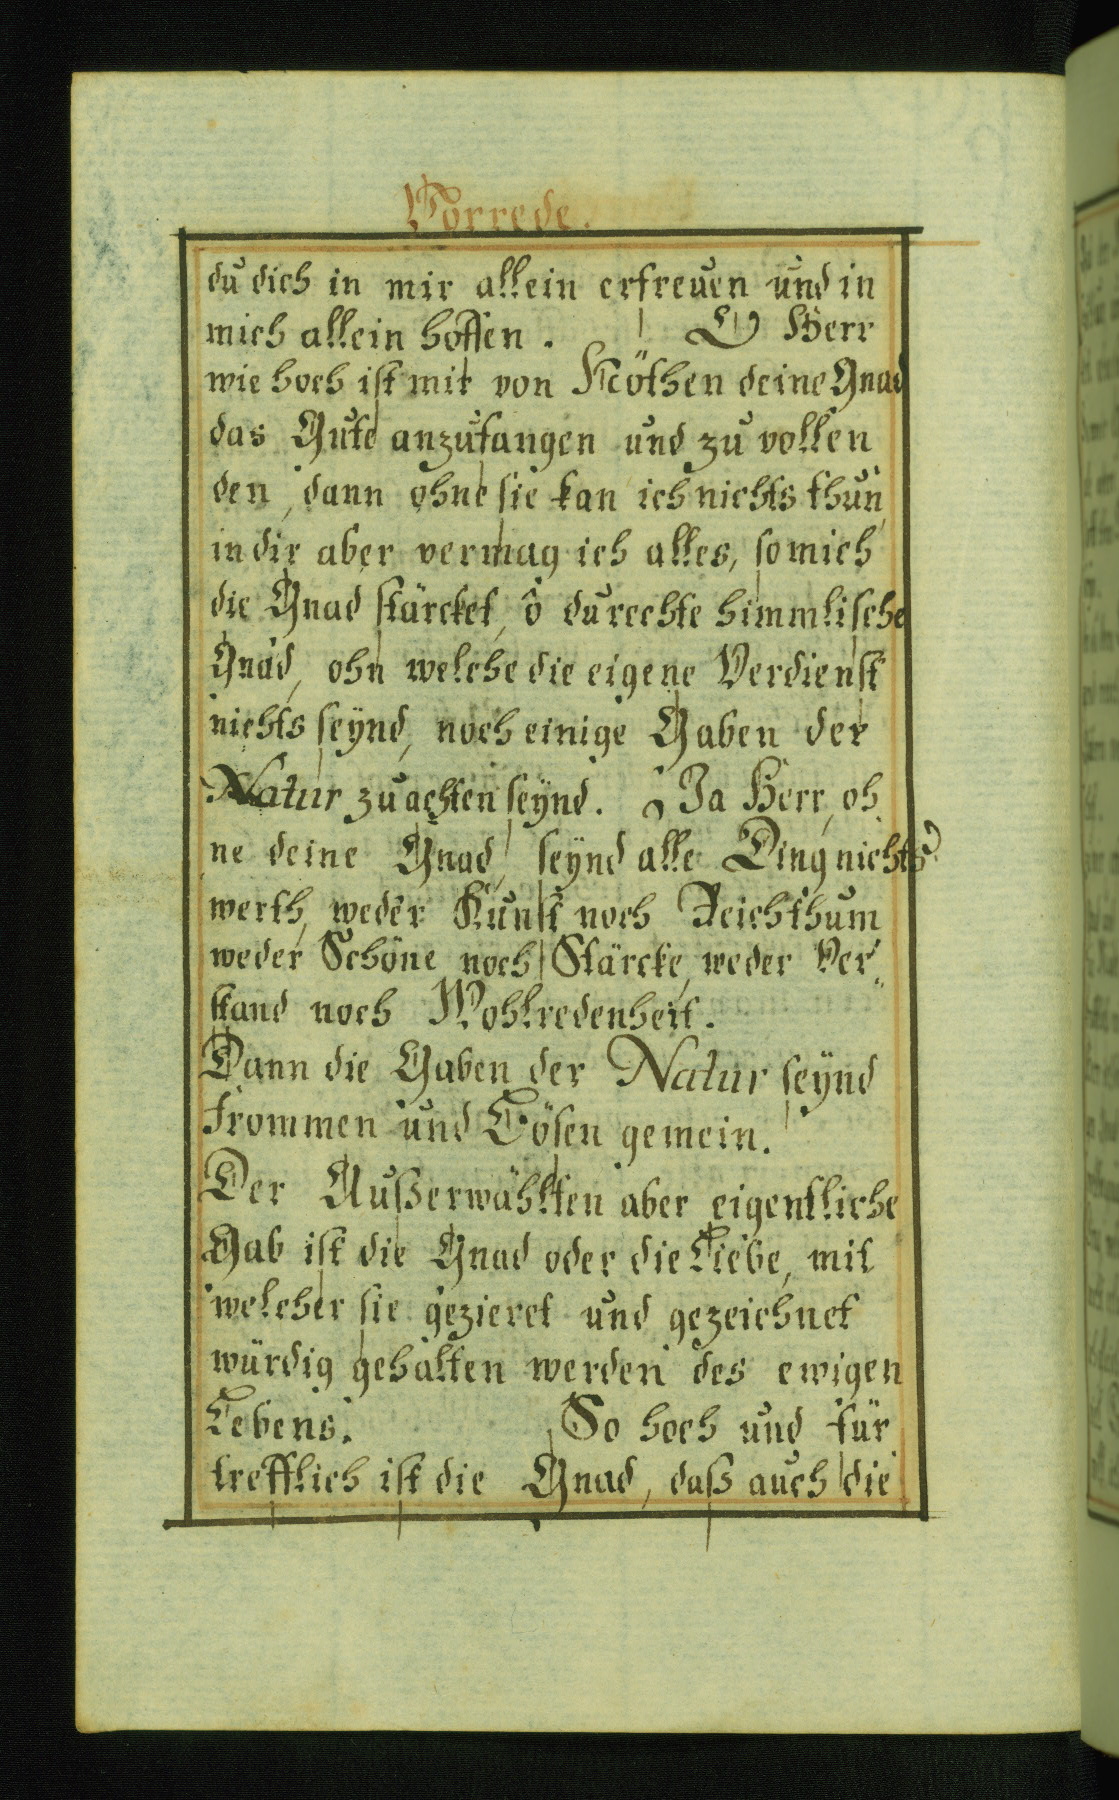 Vorrede.
du dich in mir allein erfreuen und in
mich allein hoffen. O Herr
wie hoch ist mir von Nöthen deine Gnad
das Gute anzufangen und zu vollen
den, dann ohne sie kan ich nichts thun
in dir aber vermag ich alles, so mich
die Gnad stärcket, ô du rechte himmlische
Gnad, ohn welche die eigene Verdienst
nichts seynd, noch einige Gaben der
Natur zu achten seynd. Ja Herr, oh
ne deine Gnad, seynd alle Ding nichts
werth, weder Kunst noch Reichthum
weder Schöne noch Stärcke, weder Ver„
stand noch Wohlredenheit.
Dann die Gaben der Natur seynd
frommen und Bösen gemein.
Der Außerwählten aber eigentliche
Gab ist die Gnad oder die Liebe, mit
welcher sie gezieret und gezeichnet
würdig gehalten werden des ewigen
Lebens. So hoch und für
trefflich ist die Gnad, daß auch die